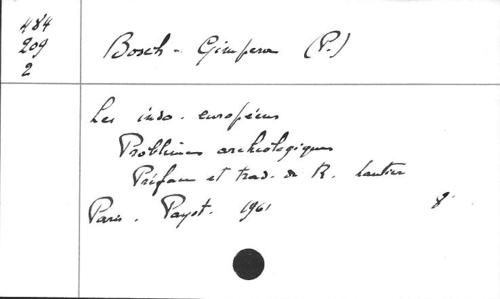 484
209
2
Bosch - Gimpera (P.)
Les indo-européens
Problèmes archéologiques
Préface et trad. de R. Lantier
Paris. Payot. 1961 8°